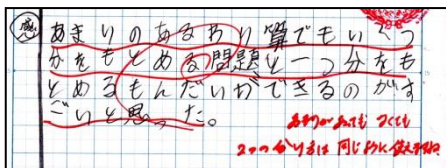 感
あまりのあるわり算でもいくつ
分をもとめる問題と一つ分をも
とめるもんだいができるのがす
ごいと思った。
あまりがあっても なくても
2つのわり方は 同じように使えますね